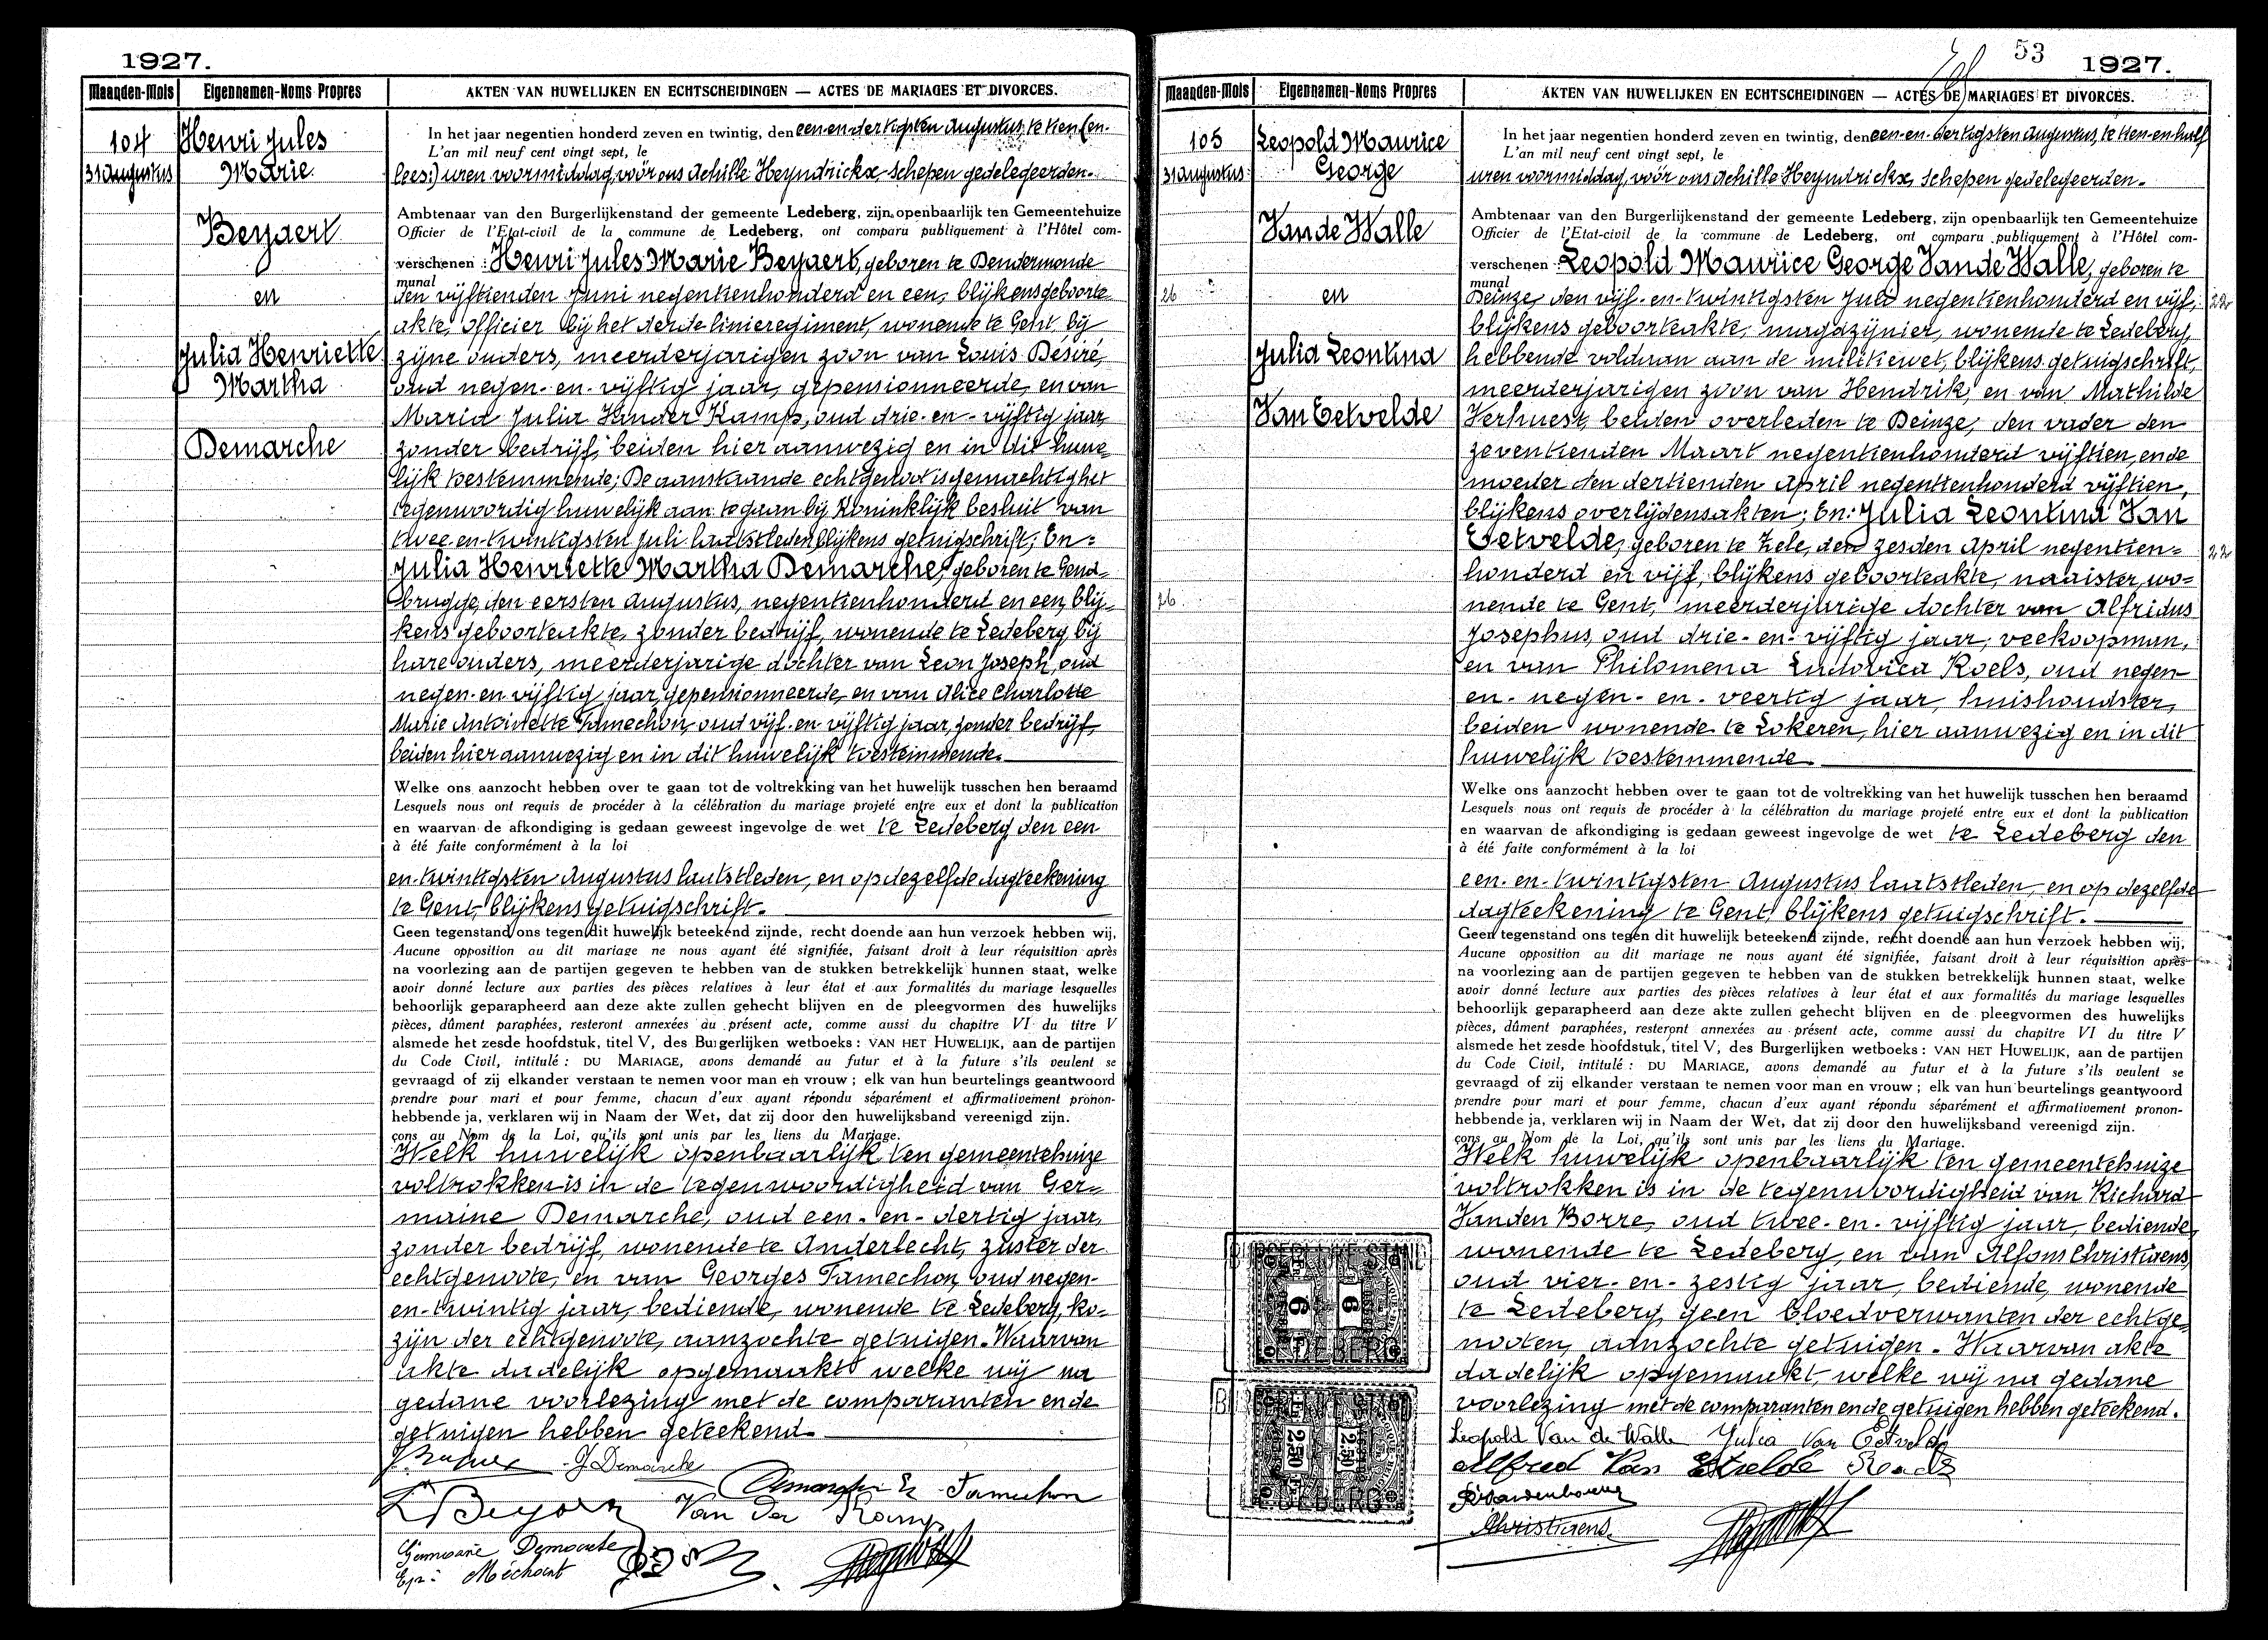 1927.
Maanden-Mois Eigennamen-Noms Propres AKTEN VAN HUWELIJKEN EN ECHTSCHEIDINGEN — ACTES DE MARIAGES ET DIVORCES.
104
31 Augustus
Henri Jules
Marie
Beyaert
en
Julia Henriette
Martha
Demarche
In het jaar negentien honderd zeven en twintig, den een-en-dertigsten Augustus, te tien (en-
L'an mil neuf cent vingt sept, le
lees:) uren voormiddag, voór ons Achille Heyndrickx, schepen gedelegeerden-
Ambtenaar van den Burgerlijkenstand der gemeente Ledeberg, zijn openbaarlijk ten Gemeentehuize
Officier de l'Etat-civil de la commune de Ledeberg, ont comparu publiquement à l'Hôtel com-
verschenen : Henri Jules Marie Beyaert, geboren te Dendermonde
munal
den vijftienden Juni negentienhonderd en een, blijkens geboorte
akte, officier bij het derde linieregiment, wonende te Gent, bij
zijne ouders, meerderjarigen zoon van Louis Désiré,
oud negen-en-vijftig jaar, gepensionneerde, en van
Maria Julia Vander Kamp, oud drie-en-vijftig jaar,
zonder bedrijf, beiden hier aanwezig en in dit huwe
lijk toestemmende; De aanstaande echtgenoot is gemachtigd het
tegenwoordig huwelijk aan te gaan bij Koninklijk besluit van
twee-en-twintigsten Juli laatstleden, blijkens getuigschrift; En:
Julia Henriette Martha Demarche, geboren te Gend-
brugge, den eersten Augustus, negentienhonderd en een, blij-
kens geboorteakte, zonder bedrijf, wonende te Ledeberg, bij
hare ouders, meerderjarige dochter van Leon Joseph, oud
negen-en vijftig jaar, gepensionneerde, en van Alice Charlotte
Marie Antoinette Tamechon, oud vijf-en vijftig jaar, zonder bedrijf,
beiden hier aanwezig en in dit huwelijk toestemmende.
Welke ons aanzocht hebben over te gaan tot de voltrekking van het huwelijk tusschen hen beraamd
Lesquels nous ont requis de procéder à la célébration du mariage projeté entre eux et dont la publication
en waarvan de afkondiging is gedaan geweest ingevolge de wet te Ledeberg, den een
à été faite conformément à la loi
en-twintigsten Augustus laatstleden, en op dezelfde dagteekening
te Gent, blijkens getuigschrift.
Geen tegenstand ons tegen dit huwelijk beteekend zijnde, recht doende aan hun verzoek hebben wij,
Aucune opposition au dit mariage ne nous ayant été signifiée, faisant droit à leur réquisition après
na voorlezing aan de partijen gegeven te hebben van de stukken betrekkelijk hunnen staat, welke
avoir donné lecture aux parties des pièces relatives à leur état et aux formalités du mariage lesquelles
behoorlijk geparapheerd aan deze akte zullen gehecht blijven en de pleegvormen des huwelijks
pièces, dûment paraphées, resteront annexées au présent acte, comme aussi du chapitre VI du titre V
alsmede het zesde hoofdstuk, titel V, des Burgerlijken wetboeks : VAN HET HUWELIJK, aan de partijen
du Code Civil, intitulé : DU MARIAGE, avons demandé au futur et à la future s'ils veulent se
gevraagd of zij elkander verstaan te nemen voor man en vrouw ; elk van hun beurtelings geantwoord
prendre pour mari et pour femme, chacun d'eux ayant répondu séparément et affirmativement pronon-
hebbende ja, verklaren wij in Naam der Wet, dat zij door den huwelijksband vereenigd zijn.
çons au Nom de la Loi, qu'ils sont unis par les liens du Mariage.
Welk huwelijk openbaarlijk ten gemeentehuize
voltrokken is in de tegenwoordigheid van Ger-
maine Demarche, oud een-en-dertig jaar,
zonder bedrijf, wonende te Anderlecht, zuster der
echtgenoote, en van Georges Tamechon, oud negen-
en-twintig jaar, bediende, wonende te Ledeberg, ko-
zijn der echtgenoote, aanzochte getuigen. Waarvan
akte dadelijk opgemaakt welke wij na
gedane voorlezing met de comparanten en de
getuigen hebben geteekend.
J Demarche
L Beyaert Van der Kamp Tamechon
Germaine Demarche
Ep: Méchant
53 1927.
Maanden-Mois Eigennamen-Noms Propres AKTEN VAN HUWELIJKEN EN ECHTSCHEIDINGEN — ACTES DE MARIAGES ET DIVORCES.
105
31 Augustus
26
26
Leopold Maurice
George
Van de Walle
en
Julia Leontina
Van Eetvelde
In het jaar negentien honderd zeven en twintig, den een-en-dertigsten Augustus, te tien-en-half
L'an mil neuf cent vingt sept, le
uren voormiddag, voór ons Achille Heyndrickx, schepen gedelegeerden-
Ambtenaar van den Burgerlijkenstand der gemeente Ledeberg, zijn openbaarlijk ten Gemeentehuize
Officier de l'Etat-civil de la commune de Ledeberg, ont comparu publiquement à l'Hôtel com-
verschenen : Leopold Maurice George Van de Walle, geboren te
munal
Deinze, den vijf-en-twintigsten Juli negentienhonderd en vijf, 22
blijkens geboorteakte, magazijnier, wonende te Ledeberg,
hebbende voldaan aan de militiewet, blijkens getuigschrift,
meerderjarigen zoon van Hendrik, en van Mathilde
Verhuest, beiden overleden te Deinze, den vader den
zeventienden Maart negentienhonderd vijftien, en de
moeder den dertienden April negentienhonderd vijftien,
blijkens overlijdensakten; En: Julia Leontina Van
Eetvelde, geboren te Zele, den zesden April negentien= 22
honderd en vijf, blijkens geboorteakte, naaister, wo=
nende te Gent, meerderjarige dochter van Alfridus
Josephus, oud drie-en-vijftig jaar, veekoopman,
en van Philomena Ludovica Roels, oud negen-
en-negen-en-veertig jaar, huishoudster,
beiden wonende te Lokeren, hier aanwezig en in dit
huwelijk toestemmende.
Welke ons aanzocht hebben over te gaan tot de voltrekking van het huwelijk tusschen hen beraamd
Lesquels nous ont requis de procéder à la célébration du mariage projeté entre eux et dont la publication
en waarvan de afkondiging is gedaan geweest ingevolge de wet te Ledeberg den
à été faite conformément à la loi
een-en-twintigsten Augustus laatstleden, en op dezelfde
dagteekening te Gent, blijkens getuigschrift.
Geen tegenstand ons tegen dit huwelijk beteekend zijnde, recht doende aan hun verzoek hebben wij,
Aucune opposition au dit mariage ne nous ayant été signifiée, faisant droit à leur réquisition après
na voorlezing aan de partijen gegeven te hebben van de stukken betrekkelijk hunnen staat, welke
avoir donné lecture aux parties des pièces relatives à leur état et aux formalités du mariage lesquelles
behoorlijk geparapheerd aan deze akte zullen gehecht blijven en de pleegvormen des huwelijks
pièces, dûment paraphées, resteront annexées au présent acte, comme aussi du chapitre VI du titre V
alsmede het zesde hoofdstuk, titel V, des Burgerlijken wetboeks : VAN HET HUWELIJK, aan de partijen
du Code Civil, intitulé : DU MARIAGE, avons demandé au futur et à la future s'ils veulent se
gevraagd of zij elkander verstaan te nemen voor man en vrouw ; elk van hun beurtelings geantwoord
prendre pour mari et pour femme, chacun d'eux ayant répondu séparément et affirmativement pronon-
hebbende ja, verklaren wij in Naam der Wet, dat zij door den huwelijksband vereenigd zijn.
çons au Nom de la Loi, qu'ils sont unis par les liens du Mariage.
Welk huwelijk openbaarlijk ten gemeentehuize
voltrokken is in de tegenwoordigheid van Richard
Vanden Borre, oud twee-en-vijftig jaar, bediende,
wonende te Ledeberg, en van Alfons Christiaens,
oud vier-en-zestig jaar, bediende, wonende
te Ledeberg, geen bloedverwanten der echtge=
nooten, aanzochte getuigen. Waarvan akte
dadelijk opgemaakt, welke wij na gedane
voorlezing met de comparanten en de getuigen hebben geteekend.
Leopold Van de Walle Julia Van Eetvelde
Alfred Van Etvelde Roels
R Vandenborre
Christiaens.
6 6
LEDEBERG
2.50 2.50
LEDEBERG